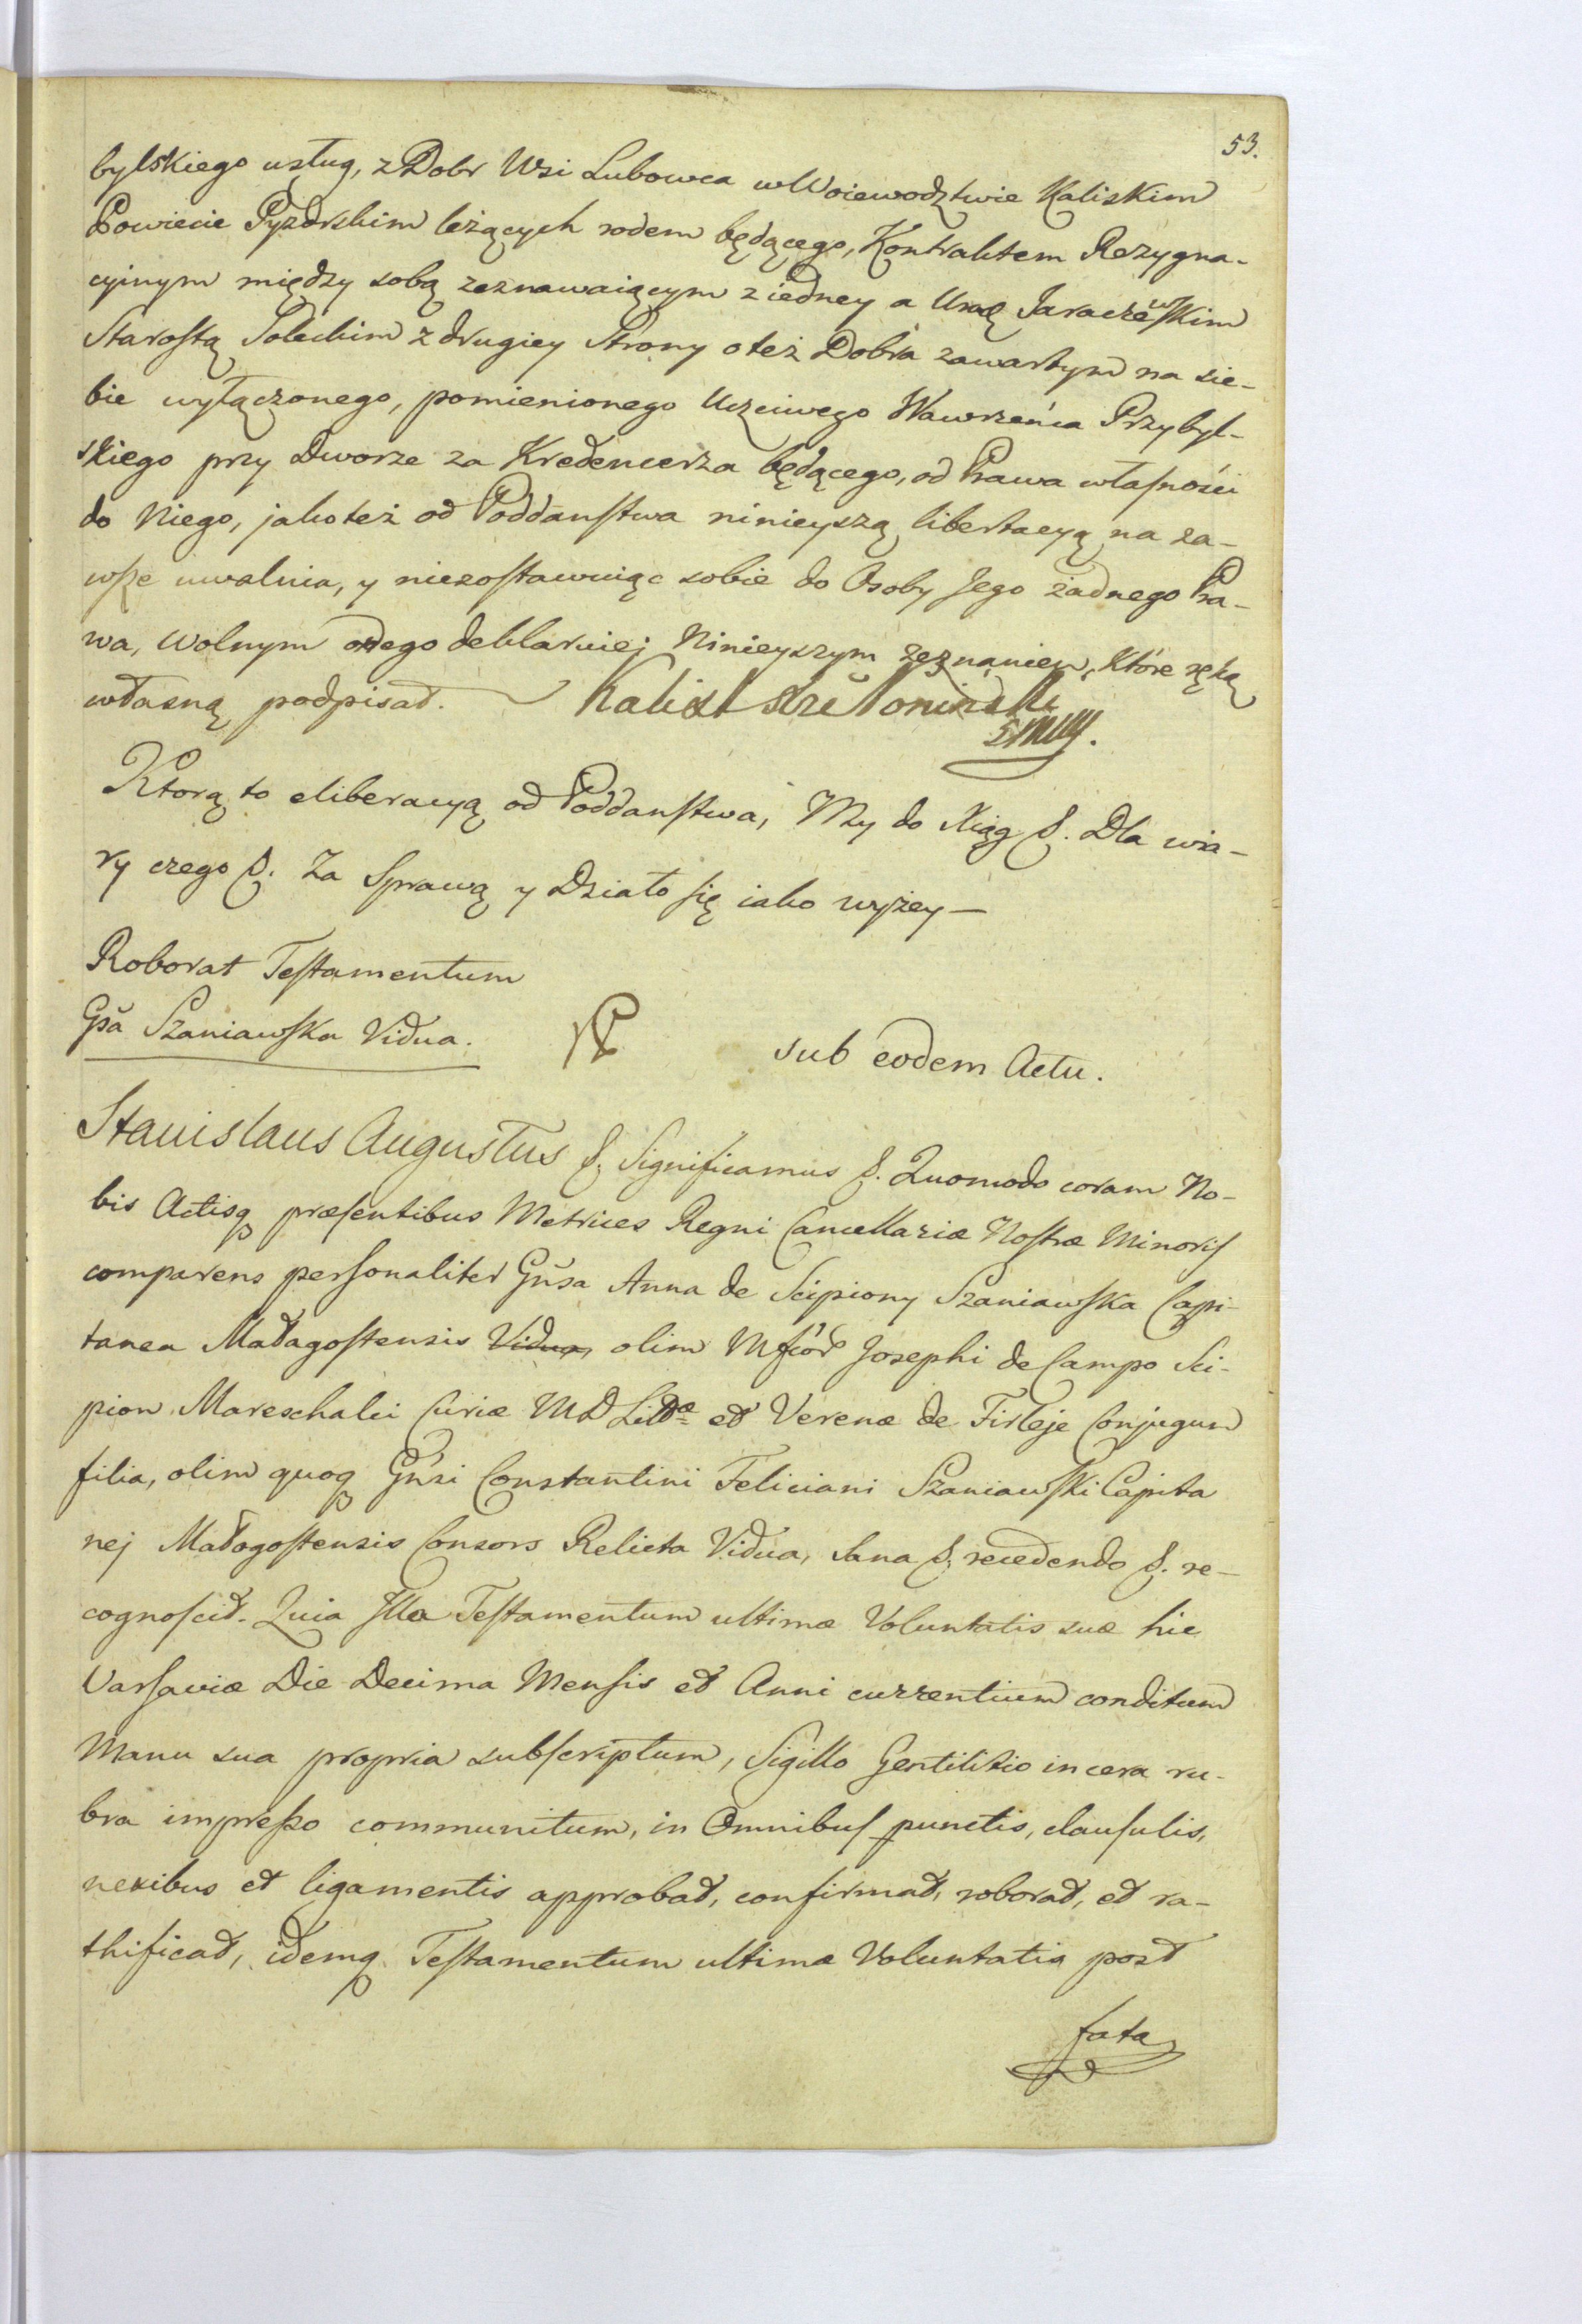 53.
bylskiego usług, z Dobr Wsi Lubowca w Woiewodztwie Kaliskim
Powiecie Pyzdrskim leżących rodem będącego, Kontraktem Rezygna-
cyinym między sobą zeznawaiącym z iedney a Urod Jaraczéwskim
Starostą Soleckim z drugiey Strony o też Dobra zawartym na sie-
bie wyłączonego, pomienionego Uczciwego Wawrzeńca Przybyl-
skiego przy Dworze za Kredencerza będącego, od Prawa własności
do Niego, jakoteż od Poddanstwa ninieyszą libertacyą na za-
wsze uwalnia, y niezostawuiąc sobie do Osoby Jego żadnego Pra-
wa, Wolnym onego deklaruiej Ninieyszym zeznaniem, które ręką
własną podpisał. Kalixt
Ktorą to eliberacyą od Poddanstwa, My do Xiąg &. Dla wia-
ry czego &. Za Sprawą y Działo się iako wyżey —
Roborat Testamentum
Gsa Szaniawska Vidua.
sub eodem Actu.
Stanislaus Augustus &. Significamus &. Quomodo coram No-
bis Actisq præsentibus Metrices Regni Cancellariæ Nostræ Minoris
comparens personaliter Gnsa Anna de Scipiony Szaniawska Capi-
tanea Małagostensis Vidua, olim Mfcor Josephi de Campo Sci-
pion Mareschalci Curiæ M D Littæ et Verenæ de Firleje Conjugum
filia, olim quoq Gnsi Constantini Feliciani Szaniawski Capita
nej Małogostensis Consors Relicta Vidua, sana &. recedendo &. re-
cognoscit. Quia Illa Testamentum ultimæ Voluntatis suæ hic
Varsaviæ Die Decima Mensis et Anni currentium conditum
Manu sua propria subscriptum, Sigillo Gentilitio in cera ru-
bra impresso communitum, in Omnibus punctis, clausulis,
nexibus et ligamentis approbat, confirmat, roborat, et ra-
thificat, idemq Testamentum ultimæ Voluntatis post
fata